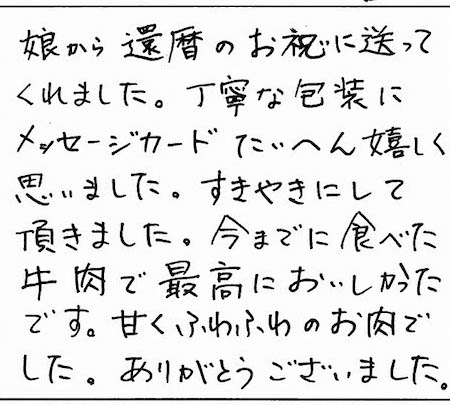 娘から還暦のお祝に送って
くれました。丁寧な包装に
メッセージカードたいへん嬉しく
思いました。すきやきにして
頂きました。今までに食べた
牛肉で最高においしかった
です。甘くふわふわのお肉で
した。ありがとうございました。